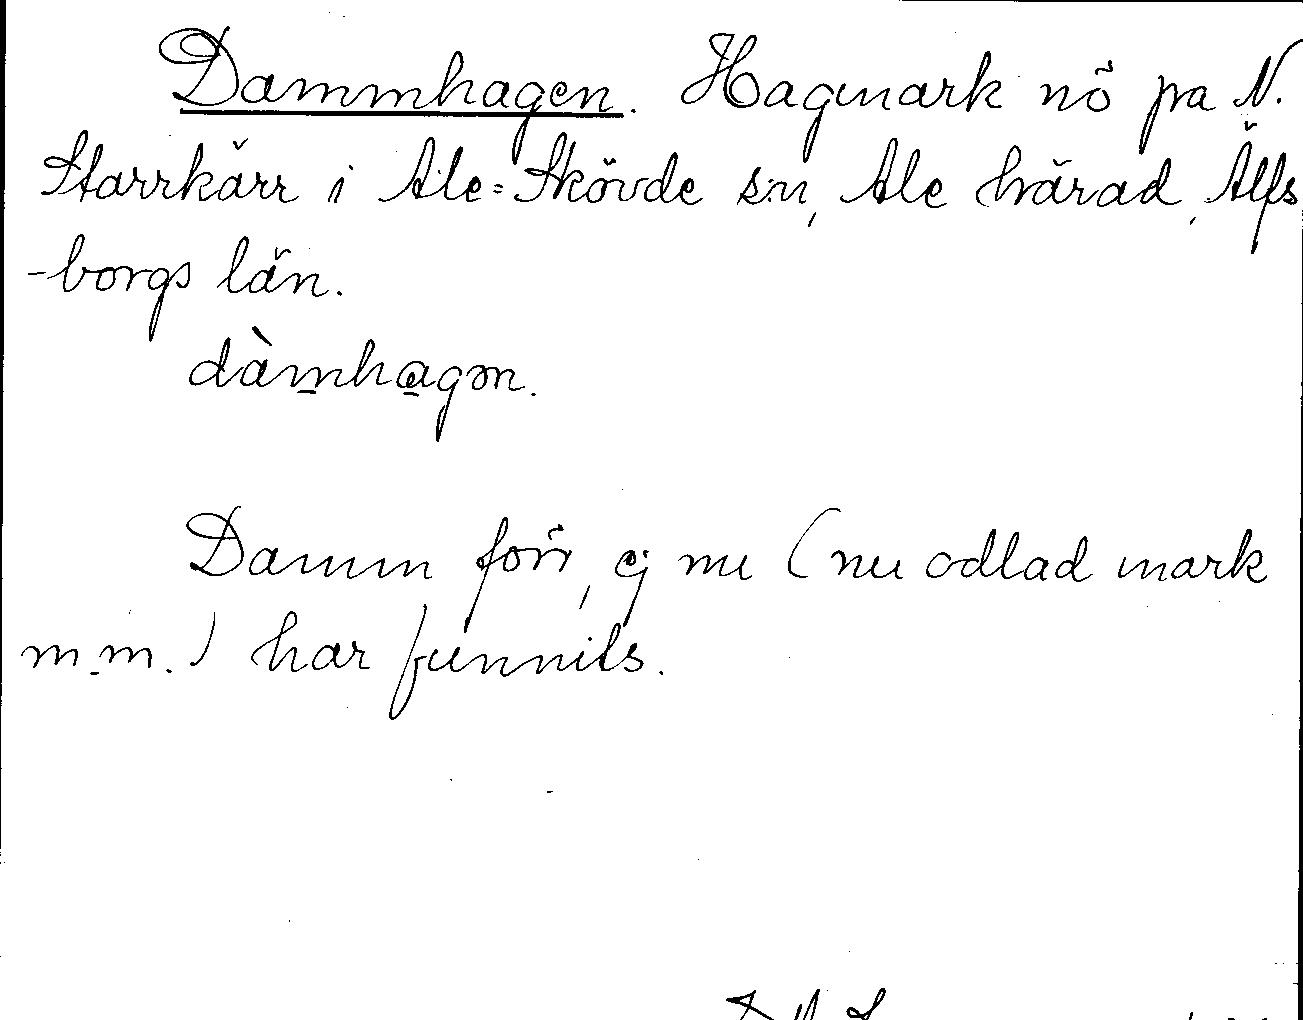 Dammhagen. Hagmark nö på N.
Starrkärr i Ale=Skövde s:n, Ale härad, Älfs
-borgs län.
dàm̲ha̲gən.
Damm förr, ej nu (nu odlad mark
m.m.) har funnits.